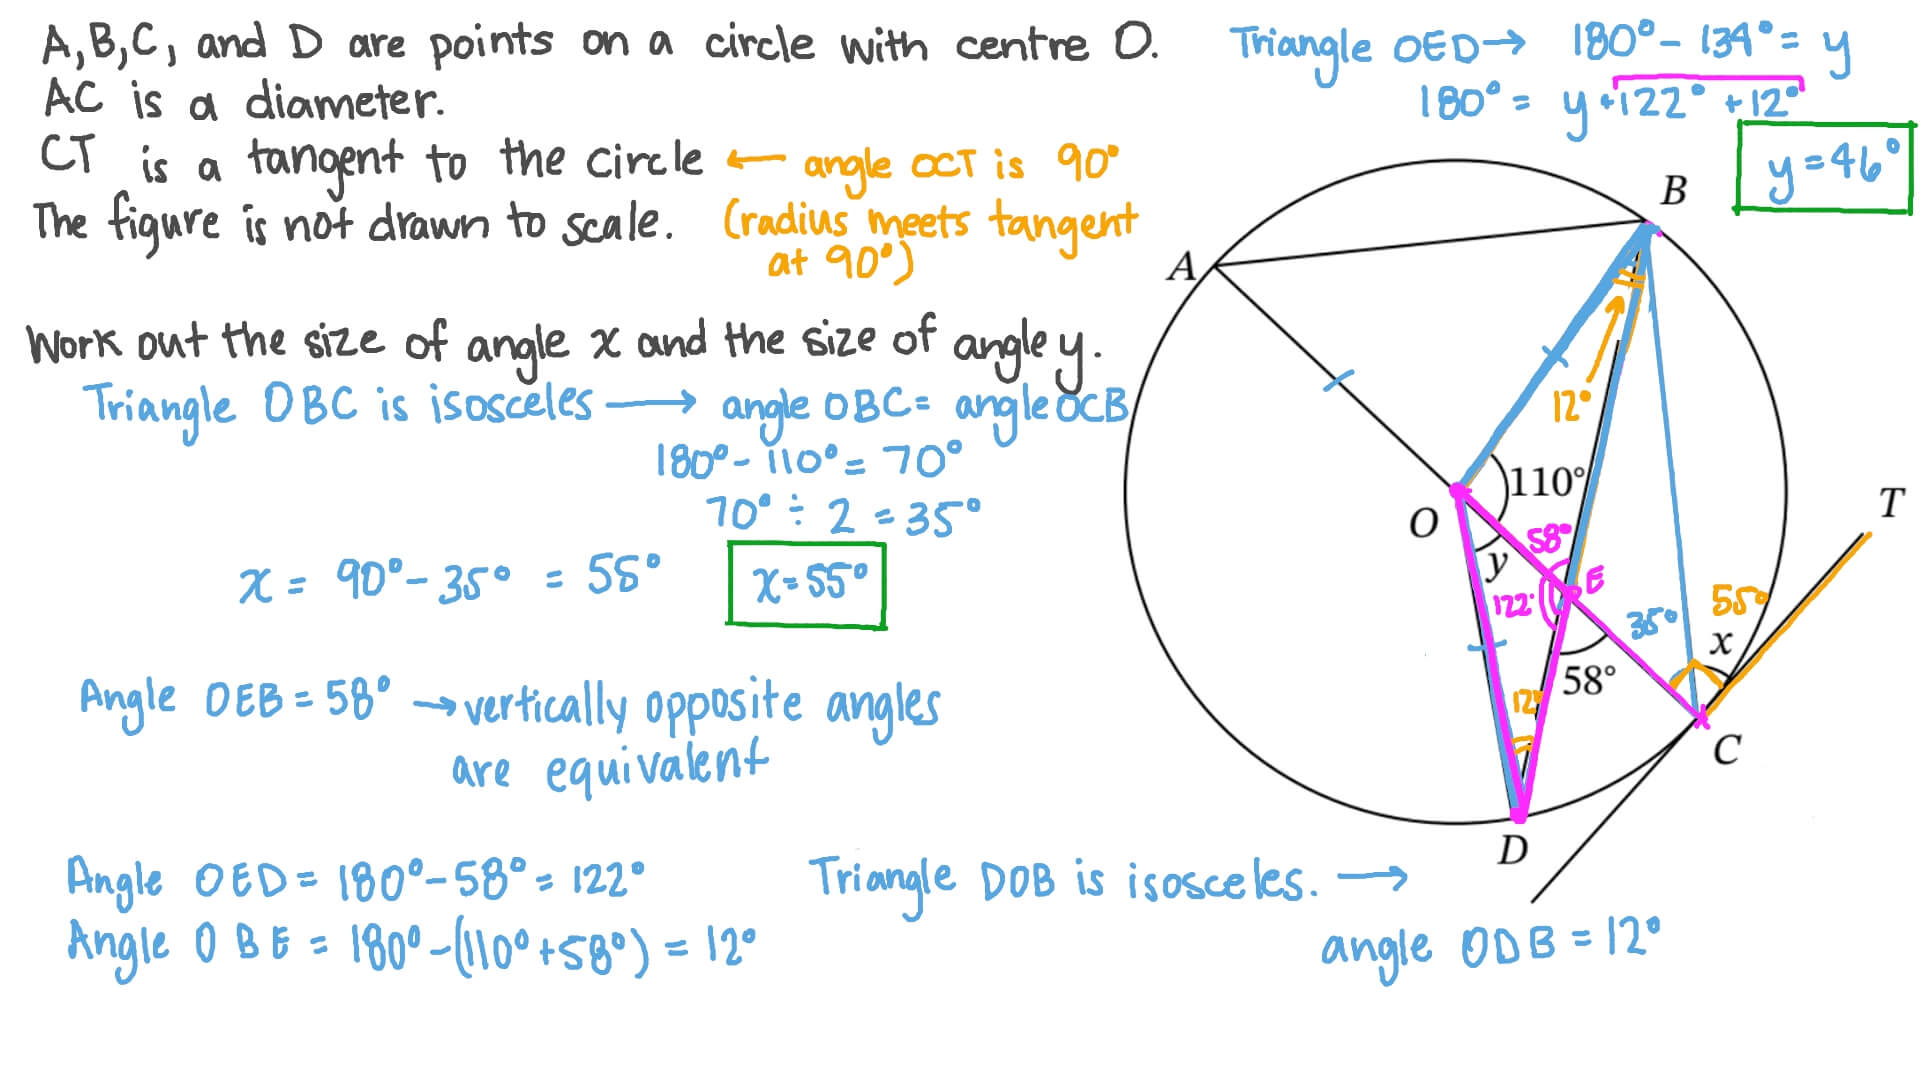 A,B,C, and D are points on a circle with centre O.
AC is a diameter.
CT is a tangent to the circle ← angle OCT is 90°
(radius meets tangent
at 90°)
The figure is not drawn to scale.
Work out the size of angle x and the size of angle y.
Triangle OBC is isosceles → angle OBC = angle OCB
180° - 110° = 70°
70° ÷ 2 = 35°
x = 90° - 35° = 55°
x = 55°
Angle OEB = 58° → vertically opposite angles
are equivalent
Angle OED = 180° - 58° = 122°
Angle OBE = 180° - (110° + 58°) = 12°
Triangle DOB is isosceles. →
angle ODB = 12°
Triangle OED → 180° - 134° = y
180° = y + 122° + 12°
y = 46°
B
A
12°
110°
T
O
58°
y
E
122°
35°
55°
x
58°
12°
C
D